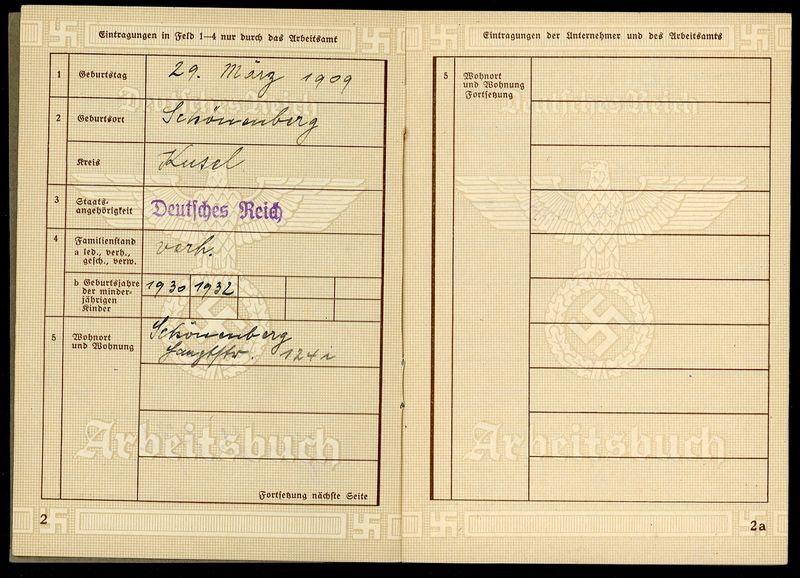 Eintragungen in Feld 1–4 nur durch das Arbeitsamt
1 Geburtstag 29. März 1909
Deutsches Reich
2 Geburtsort Schönenberg
Kreis Kusel
3 Staats-
angehörigkeit Deutsches Reich
4 Familienstand
a led., verh., verh.
gesch., verw.
b Geburtsjahre 1930 1932
der minder-
jährigen
Kinder
5 Wohnort
und Wohnung
Schönenberg
Hauptstr. 124i
Arbeitsbuch
Fortsetzung nächste Seite
2
Eintragungen der Unternehmer und des Arbeitsamts
5 Wohnort
und Wohnung
Fortsetzung
Deutsches Reich
Arbeitsbuch
2a